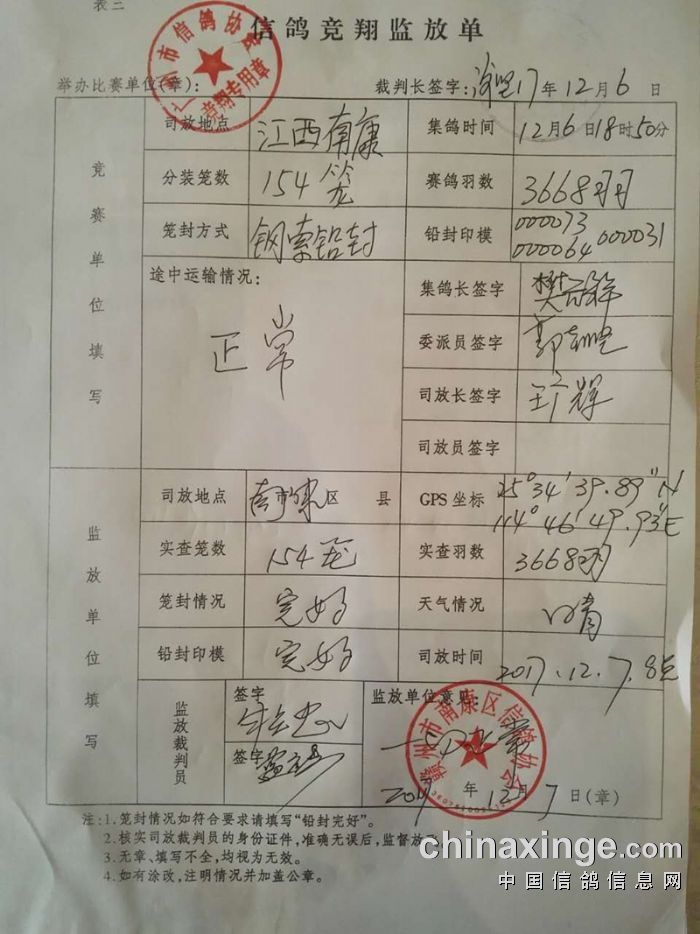 表三
信鸽竞翔监放单
广州市信鸽协会
竞翔专用章
举办比赛单位(章):
裁判长签字: 17年12月6日
竞赛单位填写
司放地点 江西南康 集鸽时间 12月6日18时50分
分装笼数 154笼 赛鸽羽数 3668羽
笼封方式 钢索铅封 铅封印模 000073 000064 000031
途中运输情况: 正常
集鸽长签字
委派员签字
司放长签字
司放员签字
监放单位填写
司放地点 南康区 县 GPS坐标 25°34′39.89″N
114°46′49.93″E
实查笼数 154笼 实查羽数 3668羽
笼封情况 完好 天气情况 晴
铅封印模 完好 司放时间 2017.12.7.8点
监放裁判员 签字
签字
监放单位意见:
赣州市南康区信鸽协会
2017年12月7日(章)
注:1.笼封情况如符合要求请填写“铅封完好”。
2.核实司放裁判员的身份证件,准确无误后,监督放
3.无章、填写不全,均视为无效。
4.如有涂改,注明情况并加盖公章。
chinaxinge.com
中国信鸽信息网